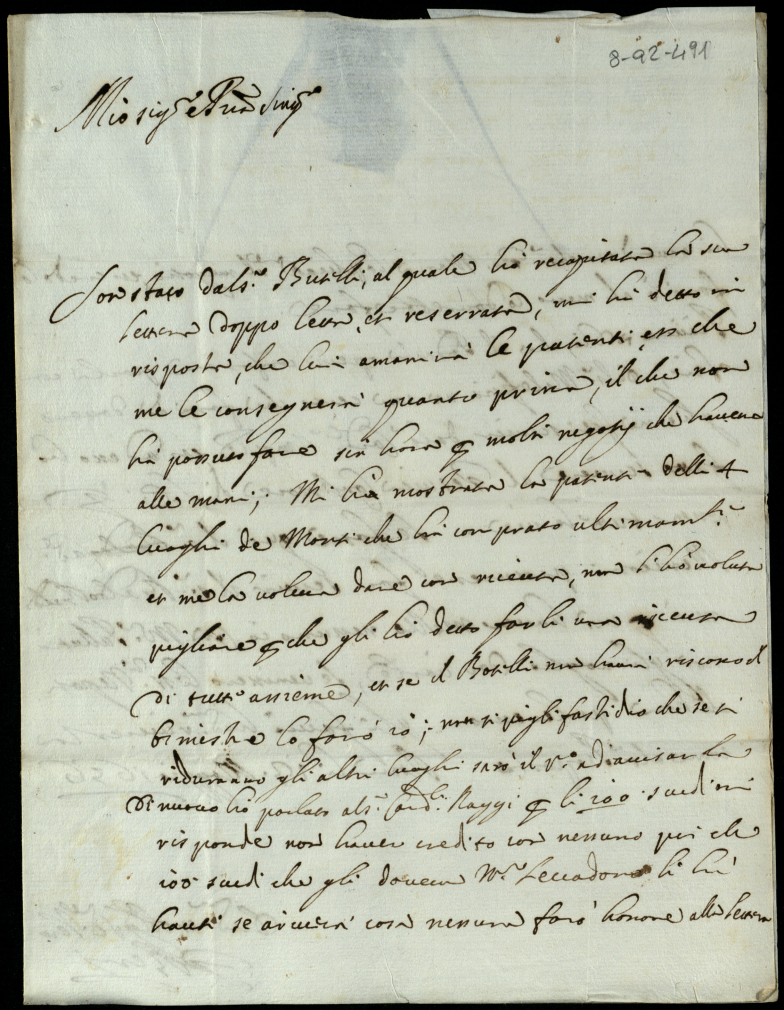 8-92-491
Mio sig.re e P.rone Sing.re
Son stato dal s.r Butelli, al quale hò recapitata la sua
lettera doppo letta, et reserrata, mi hà detto in
risposta, che lui amanirà le patenti, et che
me le consegnerà quanto prima, il che non
hà possuto fare sin hora p molti negotij che haveva
alle mani; Mi hà mostrata la patente delli 4
luoghi de Monti che hà comprato ultimam.te
et me la voleva dare con ricevuta, non l'hò voluta
pigliare p che gli hò detto farli una ricevuta
di tutti assieme, et se il Botelli non haverà riscosso il
bimestre lo farò io; non si pigli fastidio che se si
ridurranno gli altri luoghi sarò il p.o ad avisarla
Di nuovo hò parlato al s.r Card.l Raggi p li 100 scudi mi
risponde non haver credito con nessuno poi che
100 scudi che gli doveva M.r Leccadoro li hà
hauti se aviverà cosa nessuna farò honore alla lettera